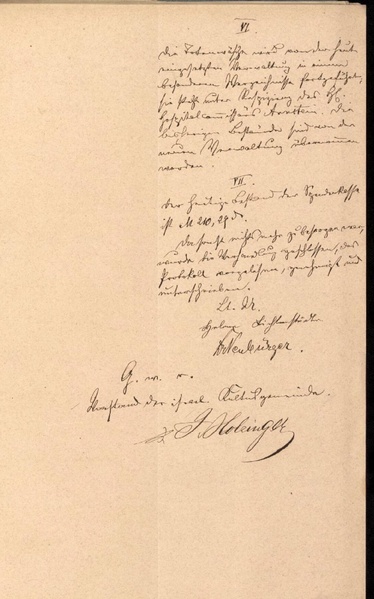 VI.
Die Totenwäsche wird von der heute
eingesetzten Verwaltung in einem
besonderen Verzeichnisse fortgeführt,
sie steht unter Aufsicht des H.
Arnstein. Die
bisherigen Bestände sind von der
neuen Verwaltung übernommen
worden.
VII.
Der heutige Bestand der Spendenkasse
ist M 210,29 d.
Da sonst nichts mehr zu besorgen war,
wurde die Versammlung geschlossen, das
Protokoll vorgelesen, genehmigt und
unterschrieben.
Lichtenstädter
Dr Neubürger.
G. w. v.
Vorstand der israel. Kultusgemeinde.